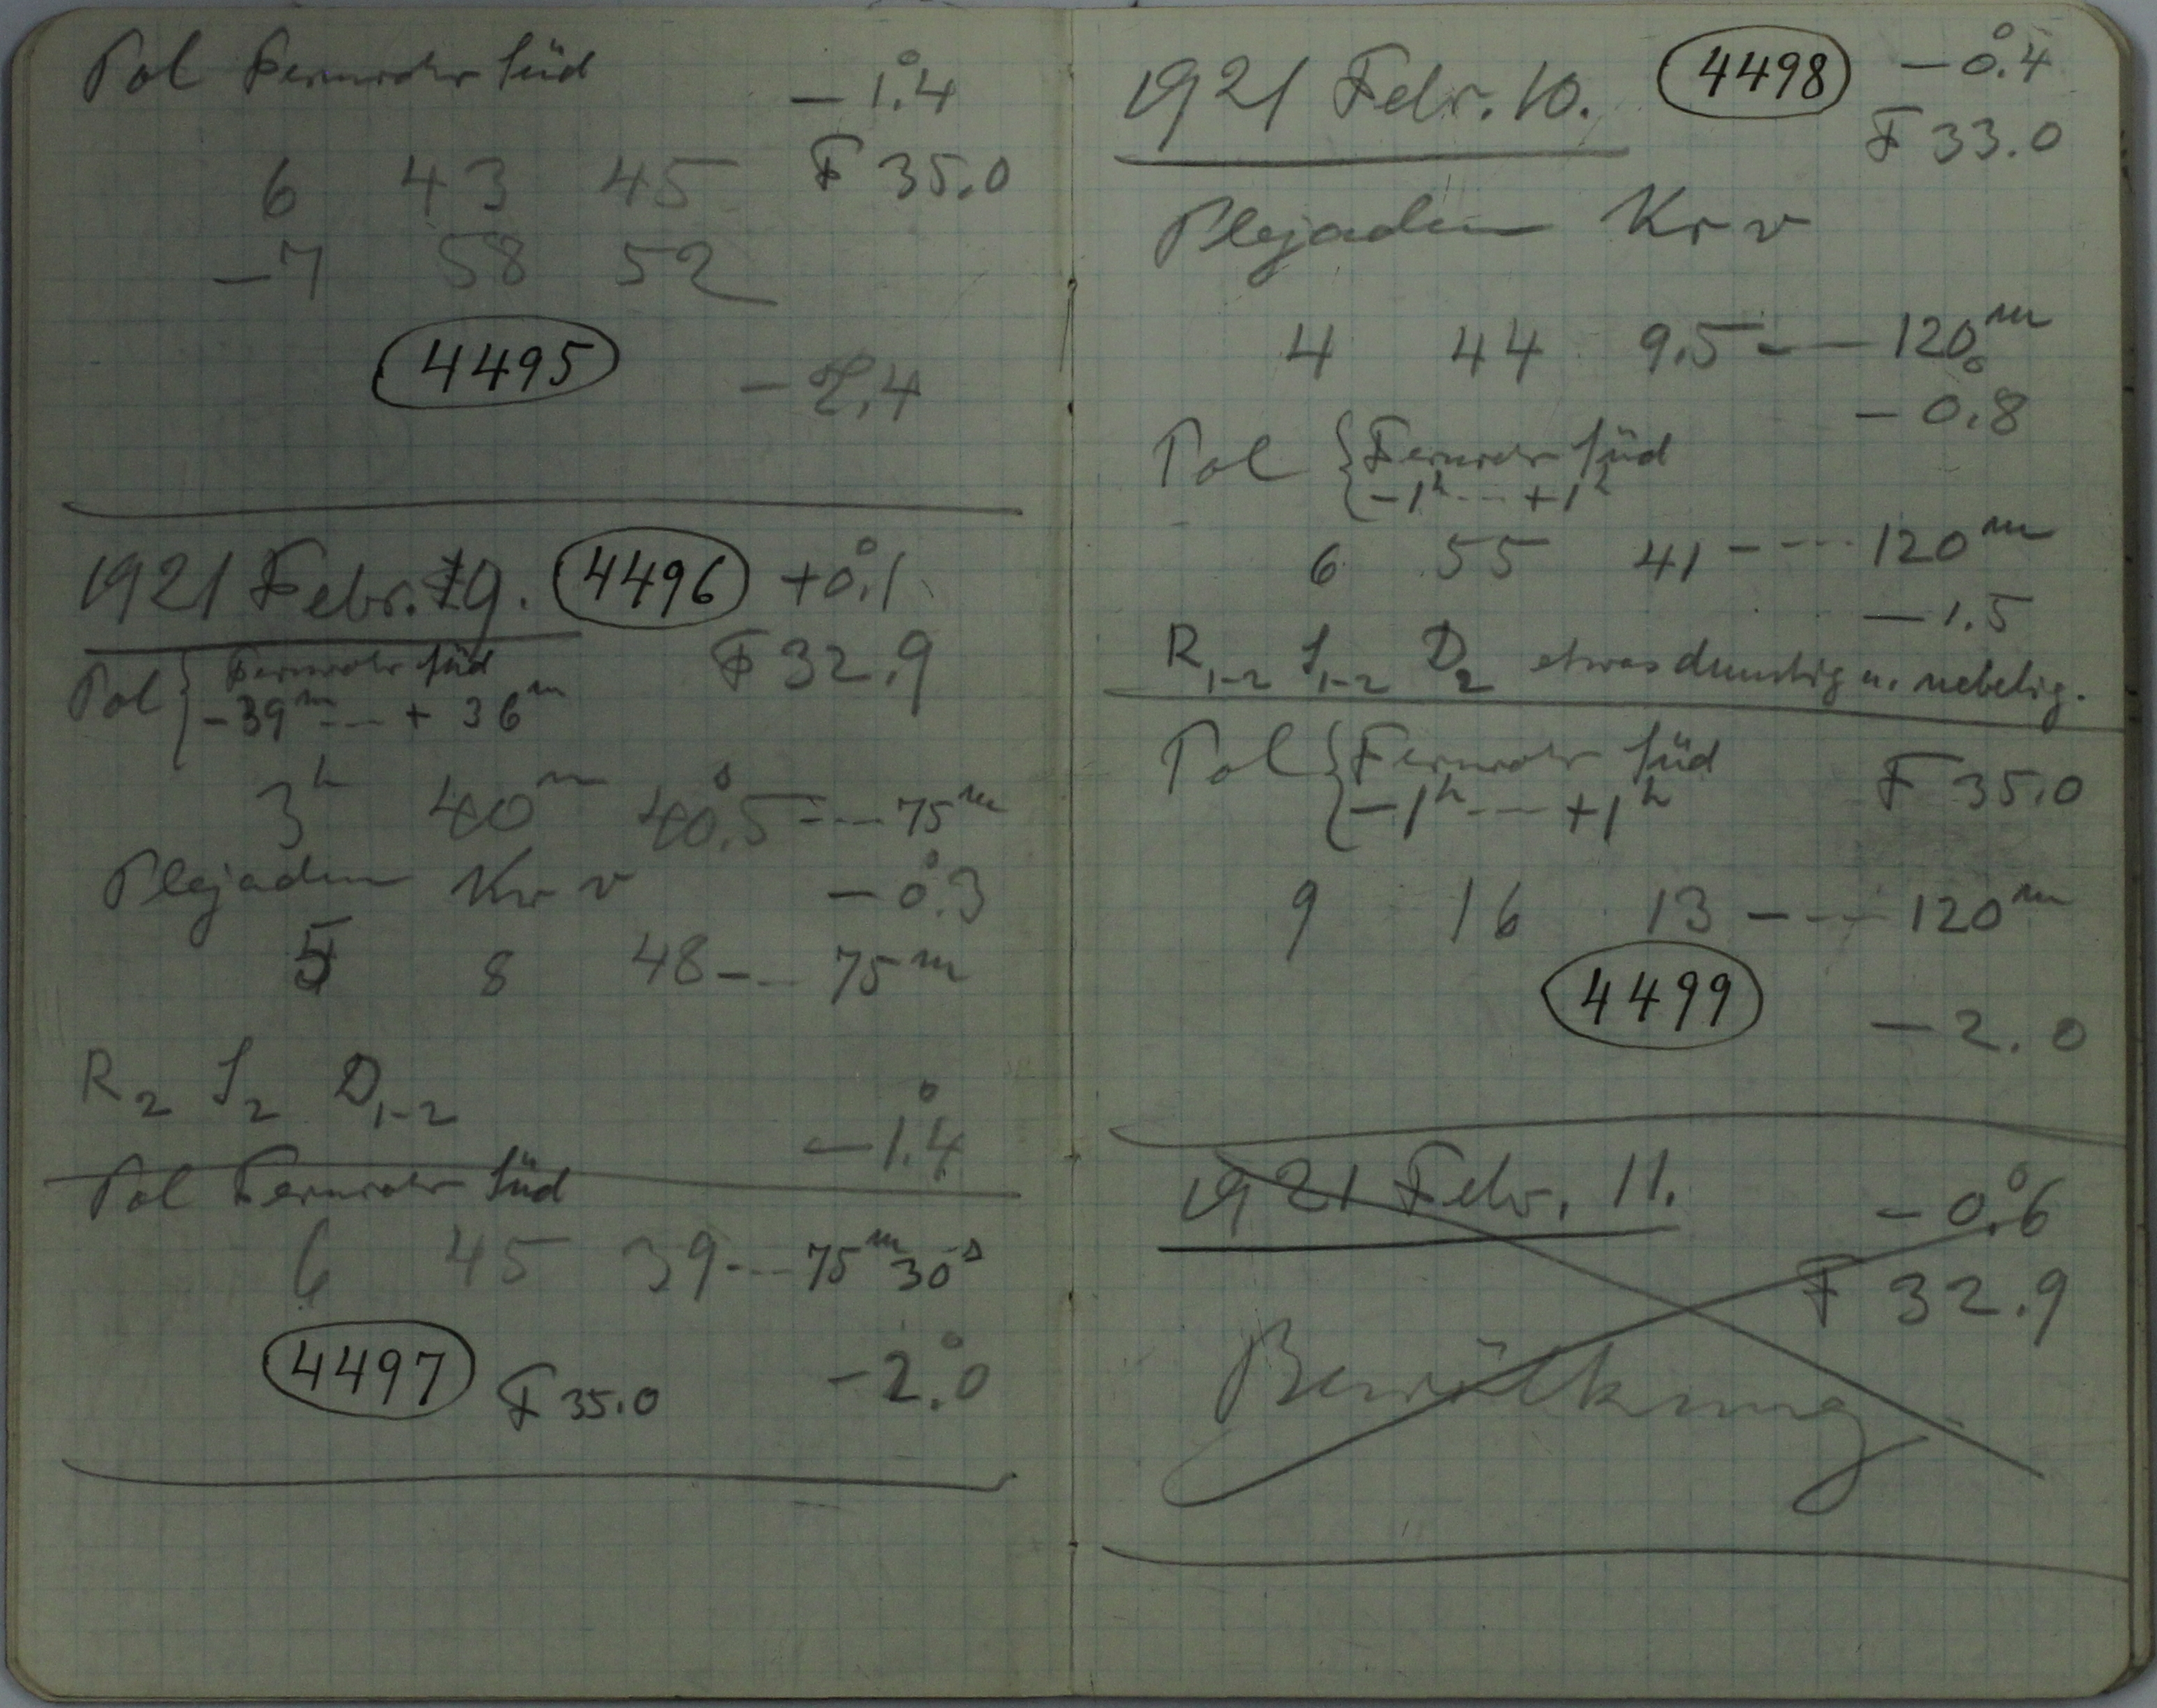 Pol Fernrohr Süd
-1°.4
6 43 45 F 35.0
-7 58 52
4495 -2°.4
1921 Febr. 9. 4496 +0°.1
F 32.9
Pol { Fernrohr Süd
-39m --- + 36m
3h 40m 40s.5 --- 75m
Plejaden Kr v -0°.3
5 8 48 --- 75m
R2 S2 D1-2
-1°.4
Pol Fernrohr Süd
6 45 39 --- 75m 30s
4497 F 35.0 -2°.0
1921 Febr. 10. 4498 -0°.4
F 33.0
Plejaden Kr v
4 44 9.5 --- 120m
-0°.8
Pol { Fernrohr Süd
-1h --- +1h
6 55 41 --- 120m
-1.5
R1-2 S1-2 D2 etwas dunstig u. nebelig.
Pol { Fernrohr Süd F 35.0
-1h --- +1h
9 16 13 --- 120m
4499
-2.0
1921 Febr. 11. -0°.6
F 32.9
Bewölkung